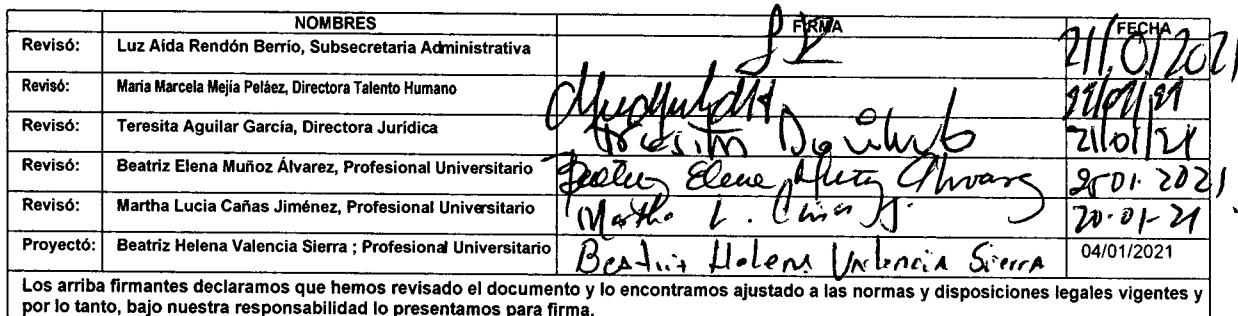 NOMBRES FIRMA FECHA
Revisó: Luz Aida Rendón Berrío, Subsecretaria Administrativa 21/01/2021
Revisó: Maria Marcela Mejía Peláez, Directora Talento Humano
Revisó: Teresita Aguilar García, Directora Jurídica 21/01/21
Revisó: Beatriz Elena Muñoz Álvarez, Profesional Universitario Beatriz Elena Muñoz Alvarez
Revisó: Martha Lucia Cañas Jiménez, Profesional Universitario Martha L. Cañas J. 20-01-21
Proyectó: Beatriz Helena Valencia Sierra ; Profesional Universitario Beatriz Helena Valencia Sierra 04/01/2021
Los arriba firmantes declaramos que hemos revisado el documento y lo encontramos ajustado a las normas y disposiciones legales vigentes y
por lo tanto, bajo nuestra responsabilidad lo presentamos para firma.